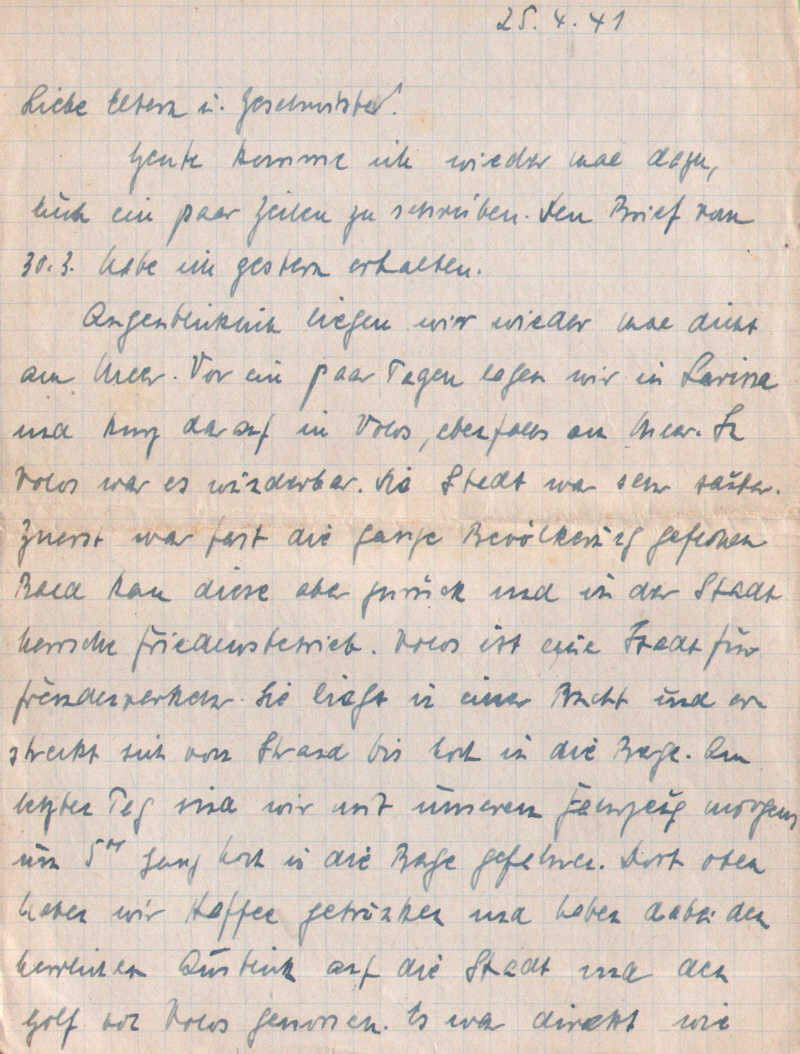 25.4.41
Liebe Eltern u. Geschwister!
Heute komme ich wieder mal dazu,
Euch ein paar Zeilen zu schreiben. Den Brief vom
30.3. habe ich gestern erhalten.
Augenblicklich liegen wir wieder mal dicht
am Meer. Vor ein paar Tagen lagen wir in Larissa
und kurz darauf in Volos, ebenfalls am Meer. In
Volos war es wunderbar. Die Stadt war sehr sauber.
Zuerst war fast die ganze Bevölkerung geflohen
Bald kam diese aber zurück und in der Stadt
herrschte Friedensbetrieb. Volos ist eine Stadt für
Fremdenverkehr. Sie liegt in einer Bucht und er
streckt sich vom Strand bis hoch in die Berge. Am
letzten Tag sind wir mit unserem Fahrzeug morgens
um 5 Uhr ganz hoch in die Berge gefahren. Dort oben
haben wir Kaffee getrunken und haben dabei den
herrlichen Ausblick auf die Stadt und den
Golf von Volos genossen. Es war direkt wie